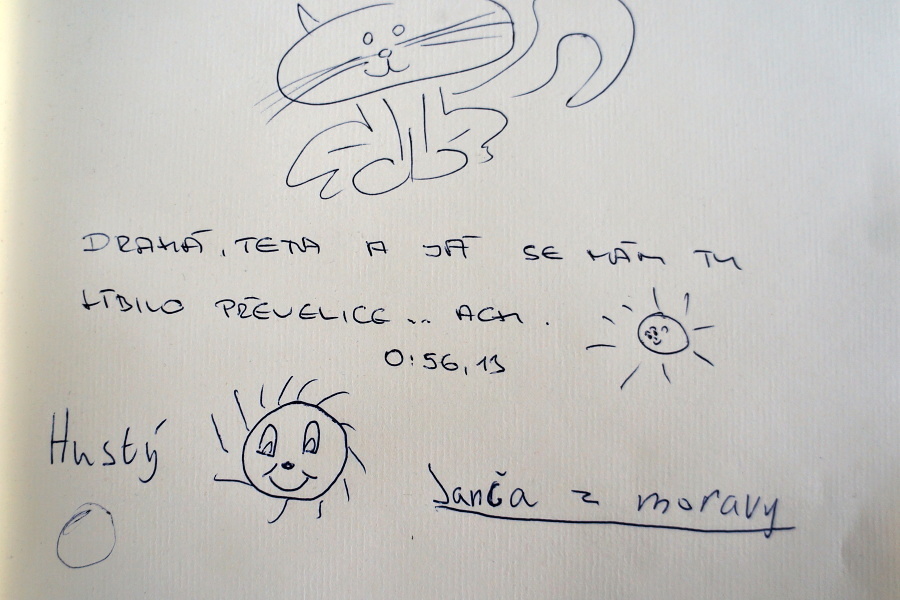 DRAHÁ, TETA A JÁ SE NÁM TU
LÍBILO PŘEVELICE... ACH.
0:56,13
Hustý
Janča z moravy